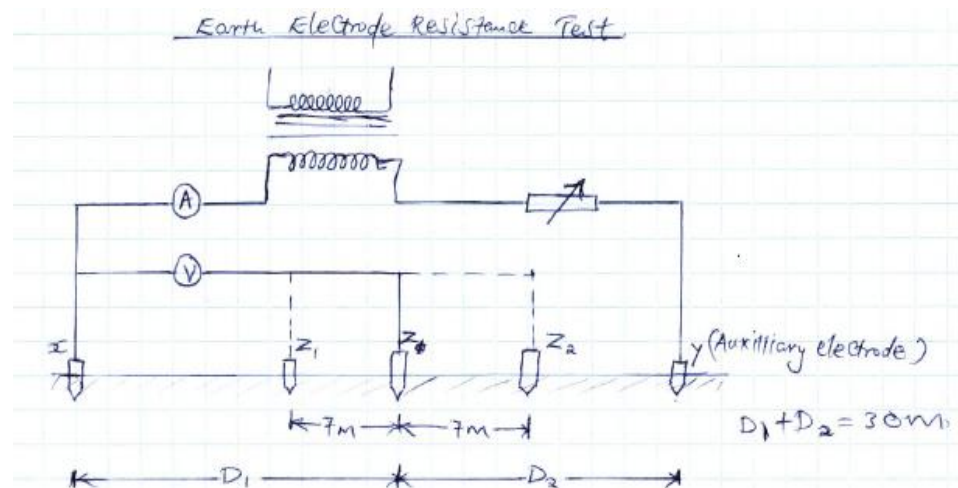 Earth Electrode Resistance Test
A
V
x
Z1
Z
Z2
y (Auxilliary electrode)
7m
7m
D1 + D2 = 30m
D1
D2